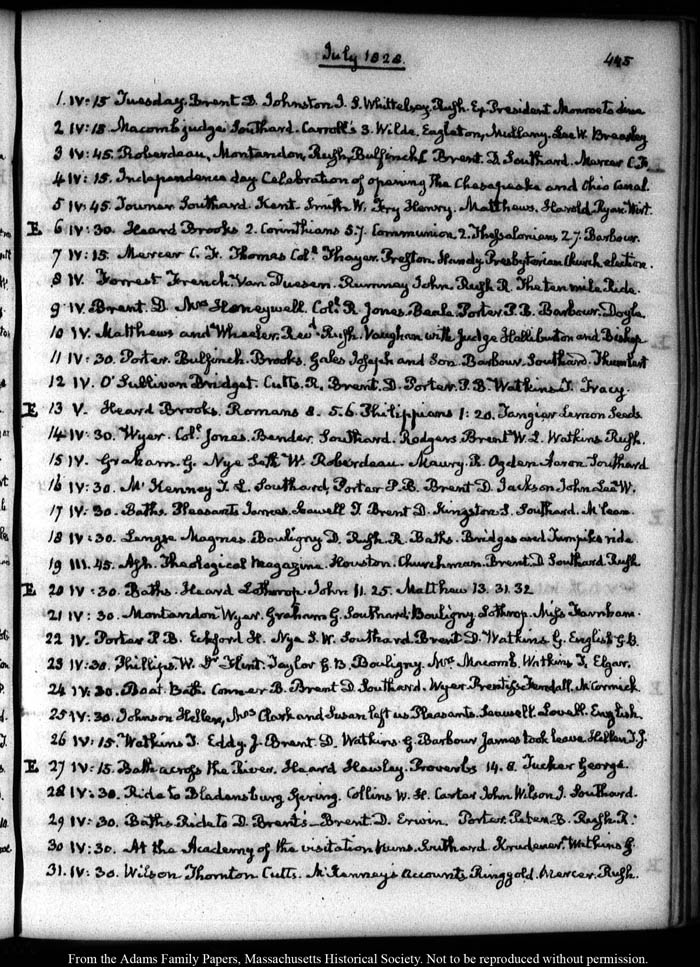 July 1828.
445
1. IV: 15 Tuesday. Brent D. Johnston J. S. Whittelsay, Rush. Ex President Monroe to dine
2 IV: 15 Macomb judge Southard. Carroll's 3. Wilde. Engleton, Mullany. Lee W. Brearley
3 IV: 45. Roberdeau, Montandon, Rush, Bulfinch C Brent. D. Southard. Mercer C. F.
4 IV: 15. Independence day Celebration of opening the Chesapeake and Ohio Canal.
5 IV: 45 Towner Southard. Kent. Smith W. Fry Henry. Matthews. Harold Ryan Wirt.
E 6 IV: 30. Heard Brooks 2. Corinthians 5.7. Communion 2. Thessalonians 2.7. Barbour.
7 IV: 15. Mercer C. F. Thomas Colo. Thayer. Preston. Handy. Presbyterian Church election.
8 IV. Forrest French. Van Dussen. Rumney John. Rush R. The ten mile Ride.
9 IV. Brent. D. Mrs. Honeywell. Colo. R. Jones. Beale. Porter P. B. Barbour. Doyle
10 IV. Matthews and Wheeler. Revd. Rush. Vaughan with Judge Halliburton and Bishop
11 IV: 30. Porter. Bulfinch. Brooks. Gales Joseph and Son Barbour. Southard.
12 IV. O'Sullivan Bridget. Cutts. R. Brent. D. Porter. P. B. Watkins. T. Tracy.
E 13 V. Heard Brooks. Romans 8. 5.6. Philippians 1: 20. Tangier Lemon Seeds.
14 IV: 30. Wyer. Colo. Jones. Bender. Southard. Rodgers Brent W. L. Watkins Rush.
15 IV. Graham. G. Nye Seth W. Roberdeau. Maury. R. Ogden Aaron. Southard
16 IV: 30. McKenney T. L. Southard, Porter P. B. Brent D. Jackson John Lee W.
17 IV: 30. Baths. Pleasants James. Seawell T. Brent D. Kingston. S. Southard. McLean.
18 IV: 30. Langse Magnes. Bouligny D. Rush. R. Baths. Bridges and Turnpike ride.
19 III. 45. Ash. Theological Magazine. Houston. Churchman. Brent. D. Southard. Rush
E 20 IV: 30. Baths. Heard Lothrop. John 11. 25. Matthew 13. 31. 32
21 IV: 30. Montandon Wyer. Graham G. Southard. Bouligny. Lothrop. Miss Farnham.
22 IV. Porter P. B. Eckford H. Nye S. W. Southard. Brent D. Watkins G. English G. B.
23 IV: 30. Phillips. W. Dr. Flint. Taylor G. B. Bouligny. Mrs. Macomb. Watkins T. Elgar.
24 IV: 30. Boat Bath. Conner B. Brent D. Southard. Wyer. Prentiss Kendall. McCormick
25 IV: 30. Johnson Hellen, Mrs. Clark and Susan left us Pleasants. Seawell. Lovell. English.
26 IV: 15. Watkins T. Eddy. J. Brent. D. Watkins. G. Barbour James took leave Hellen T. J.
E 27 IV: 15. Bath across the River. Heard Hawley. Proverbs 14. 8. Tucker George.
28 IV: 30. Ride to Bladensburg Spring. Collins W. H. Carter John. Wilson J. Southard.
29 IV: 30. Baths. Ride to D. Brent's. Brent. D. Erwin. Porter. Peter. B. Rush R.
30 IV: 30. At the Academy of the visitation Nuns. Southard Krudener. Watkins G.
31. IV: 30. Wilson Thornton Cutts. McKenney's accounts. Ringgold. Mercer. Rush.
From the Adams Family Papers, Massachusetts Historical Society. Not to be reproduced without permission.